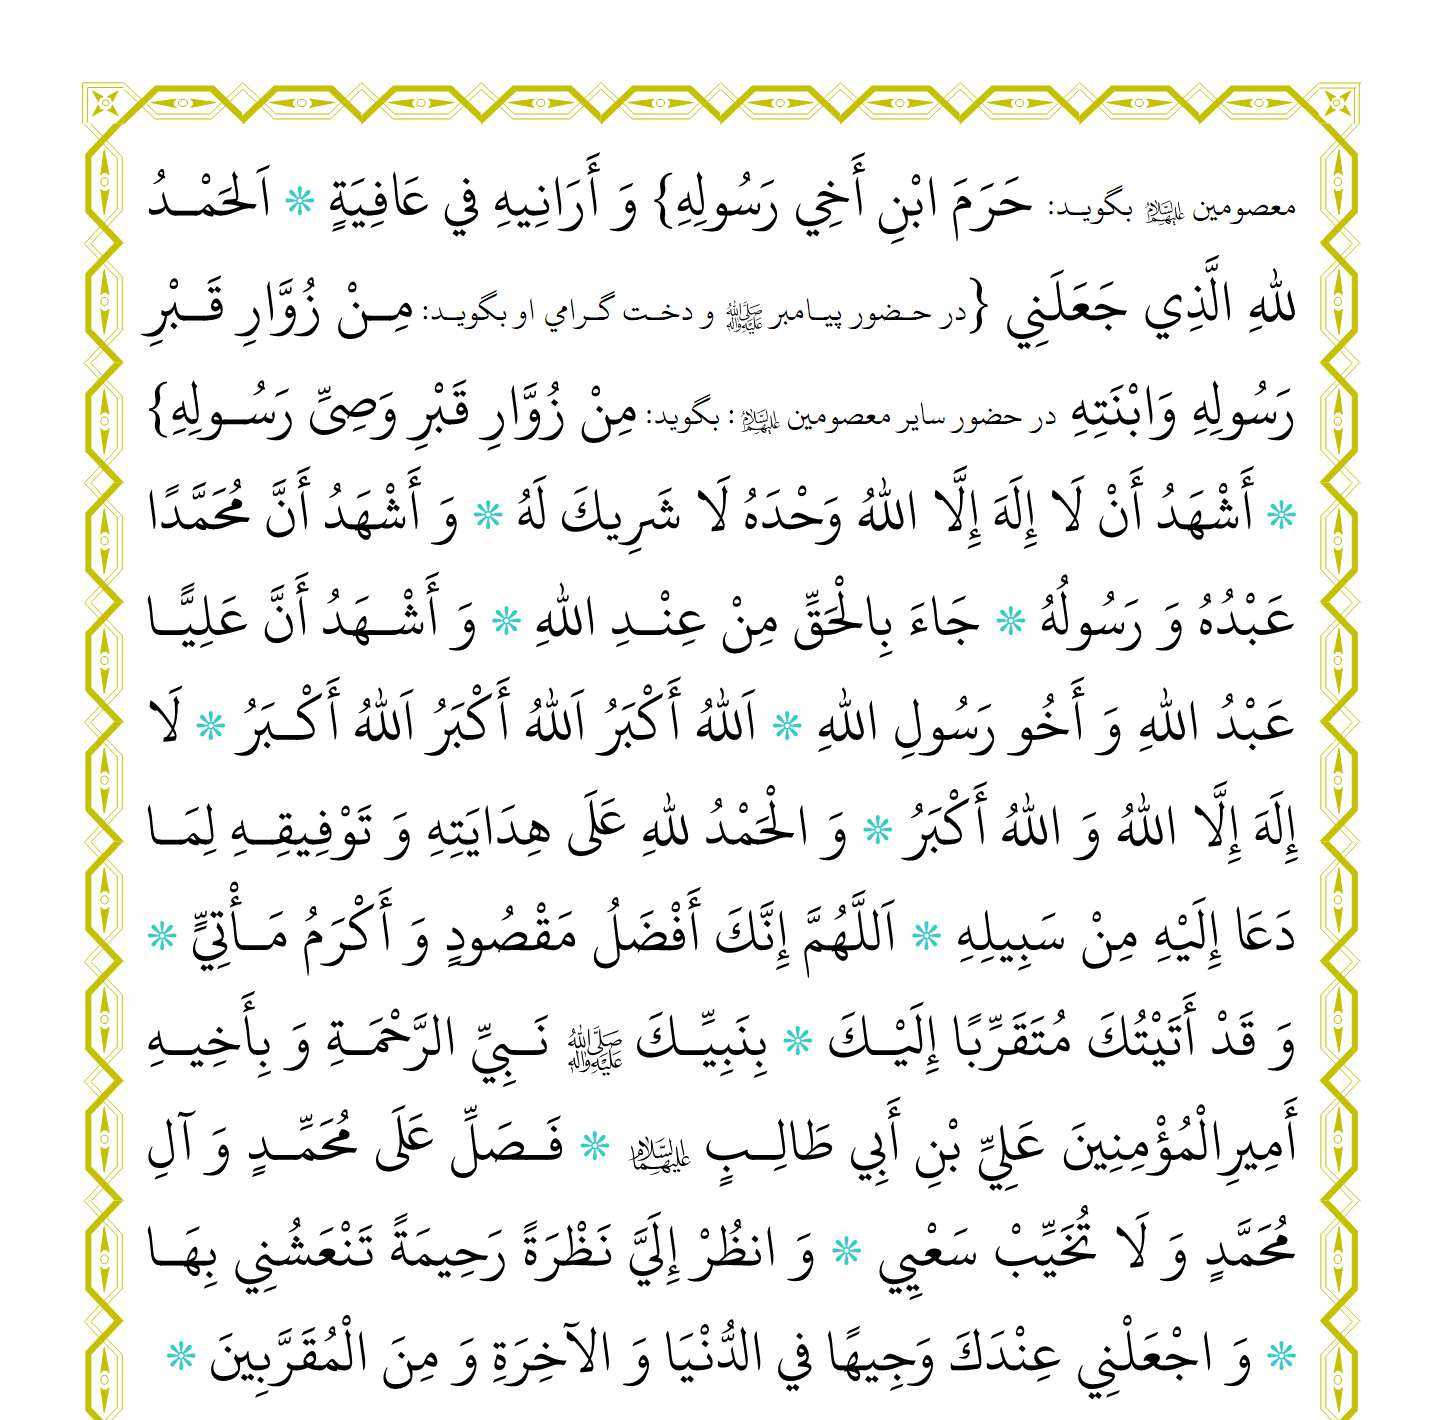 معصومین علیهم السلام بگویـد: حَرَمَ ابْنِ أَخِي رَسُولِهِ} وَ أَرَانِيهِ فِي عَافِيَةٍ * اَلْحَمْـدُ
لِلّٰهِ الَّذِي جَعَلَنِي {در حـضور پیـامبر صلی الله علیه وآله و دخـت گـرامي او بگویـد: مِـنْ زُوَّارِ قَـبْرِ
رَسُولِهِ وَابْنَتِهِ در حضور سایر معصومین علیهم السلام: بگوید: مِنْ زُوَّارِ قَبْرِ وَصِيِّ رَسُـولِهِ}
* أَشْهَدُ أَنْ لَا إِلَهَ إِلَّا اللهُ وَحْدَهُ لَا شَرِيكَ لَهُ * وَ أَشْهَدُ أَنَّ مُحَمَّدًا
عَبْدُهُ وَ رَسُولُهُ * جَاءَ بِالْحَقِّ مِنْ عِنْـدِ اللهِ * وَ أَشْـهَدُ أَنَّ عَلِيًّـا
عَبْدُ اللهِ وَ أَخُو رَسُولِ اللهِ * اَللهُ أَكْبَرُ اَللهُ أَكْبَرُ اَللهُ أَكْـبَرُ * لَا
إِلَهَ إِلَّا اللهُ وَ اللهُ أَكْبَرُ * وَ الْحَمْدُ لِلّٰهِ عَلَى هِدَايَتِهِ وَ تَوْفِيقِـهِ لِمَـا
دَعَا إِلَيْهِ مِنْ سَبِيلِهِ * اَللَّهُمَّ إِنَّكَ أَفْضَلُ مَقْصُودٍ وَ أَكْرَمُ مَـأْتِيٍّ *
وَ قَدْ أَتَيْتُكَ مُتَقَرِّبًا إِلَيْـكَ * بِنَبِيِّـكَ صلی الله علیه وآله نَـبِيِّ الرَّحْمَـةِ وَ بِأَخِيـهِ
أَمِيرِالْمُؤْمِنِينَ عَلِيِّ بْنِ أَبِي طَالِـبٍ علیهما السلام * فَـصَلِّ عَلَى مُحَمَّـدٍ وَ آلِ
مُحَمَّدٍ وَ لَا تُخَيِّبْ سَعْيِي * وَ انظُرْ إِلَيَّ نَظْرَةً رَحِيمَةً تَنْعَشُنِي بِهَـا
* وَ اجْعَلْنِي عِنْدَكَ وَجِيهًا فِي الدُّنْيَا وَ الآخِرَةِ وَ مِنَ الْمُقَرَّبِينَ *